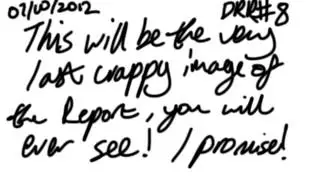 07/10/2012 DRR#8
This will be the very
last crappy image of
the Report, you will
ever see! I promise!